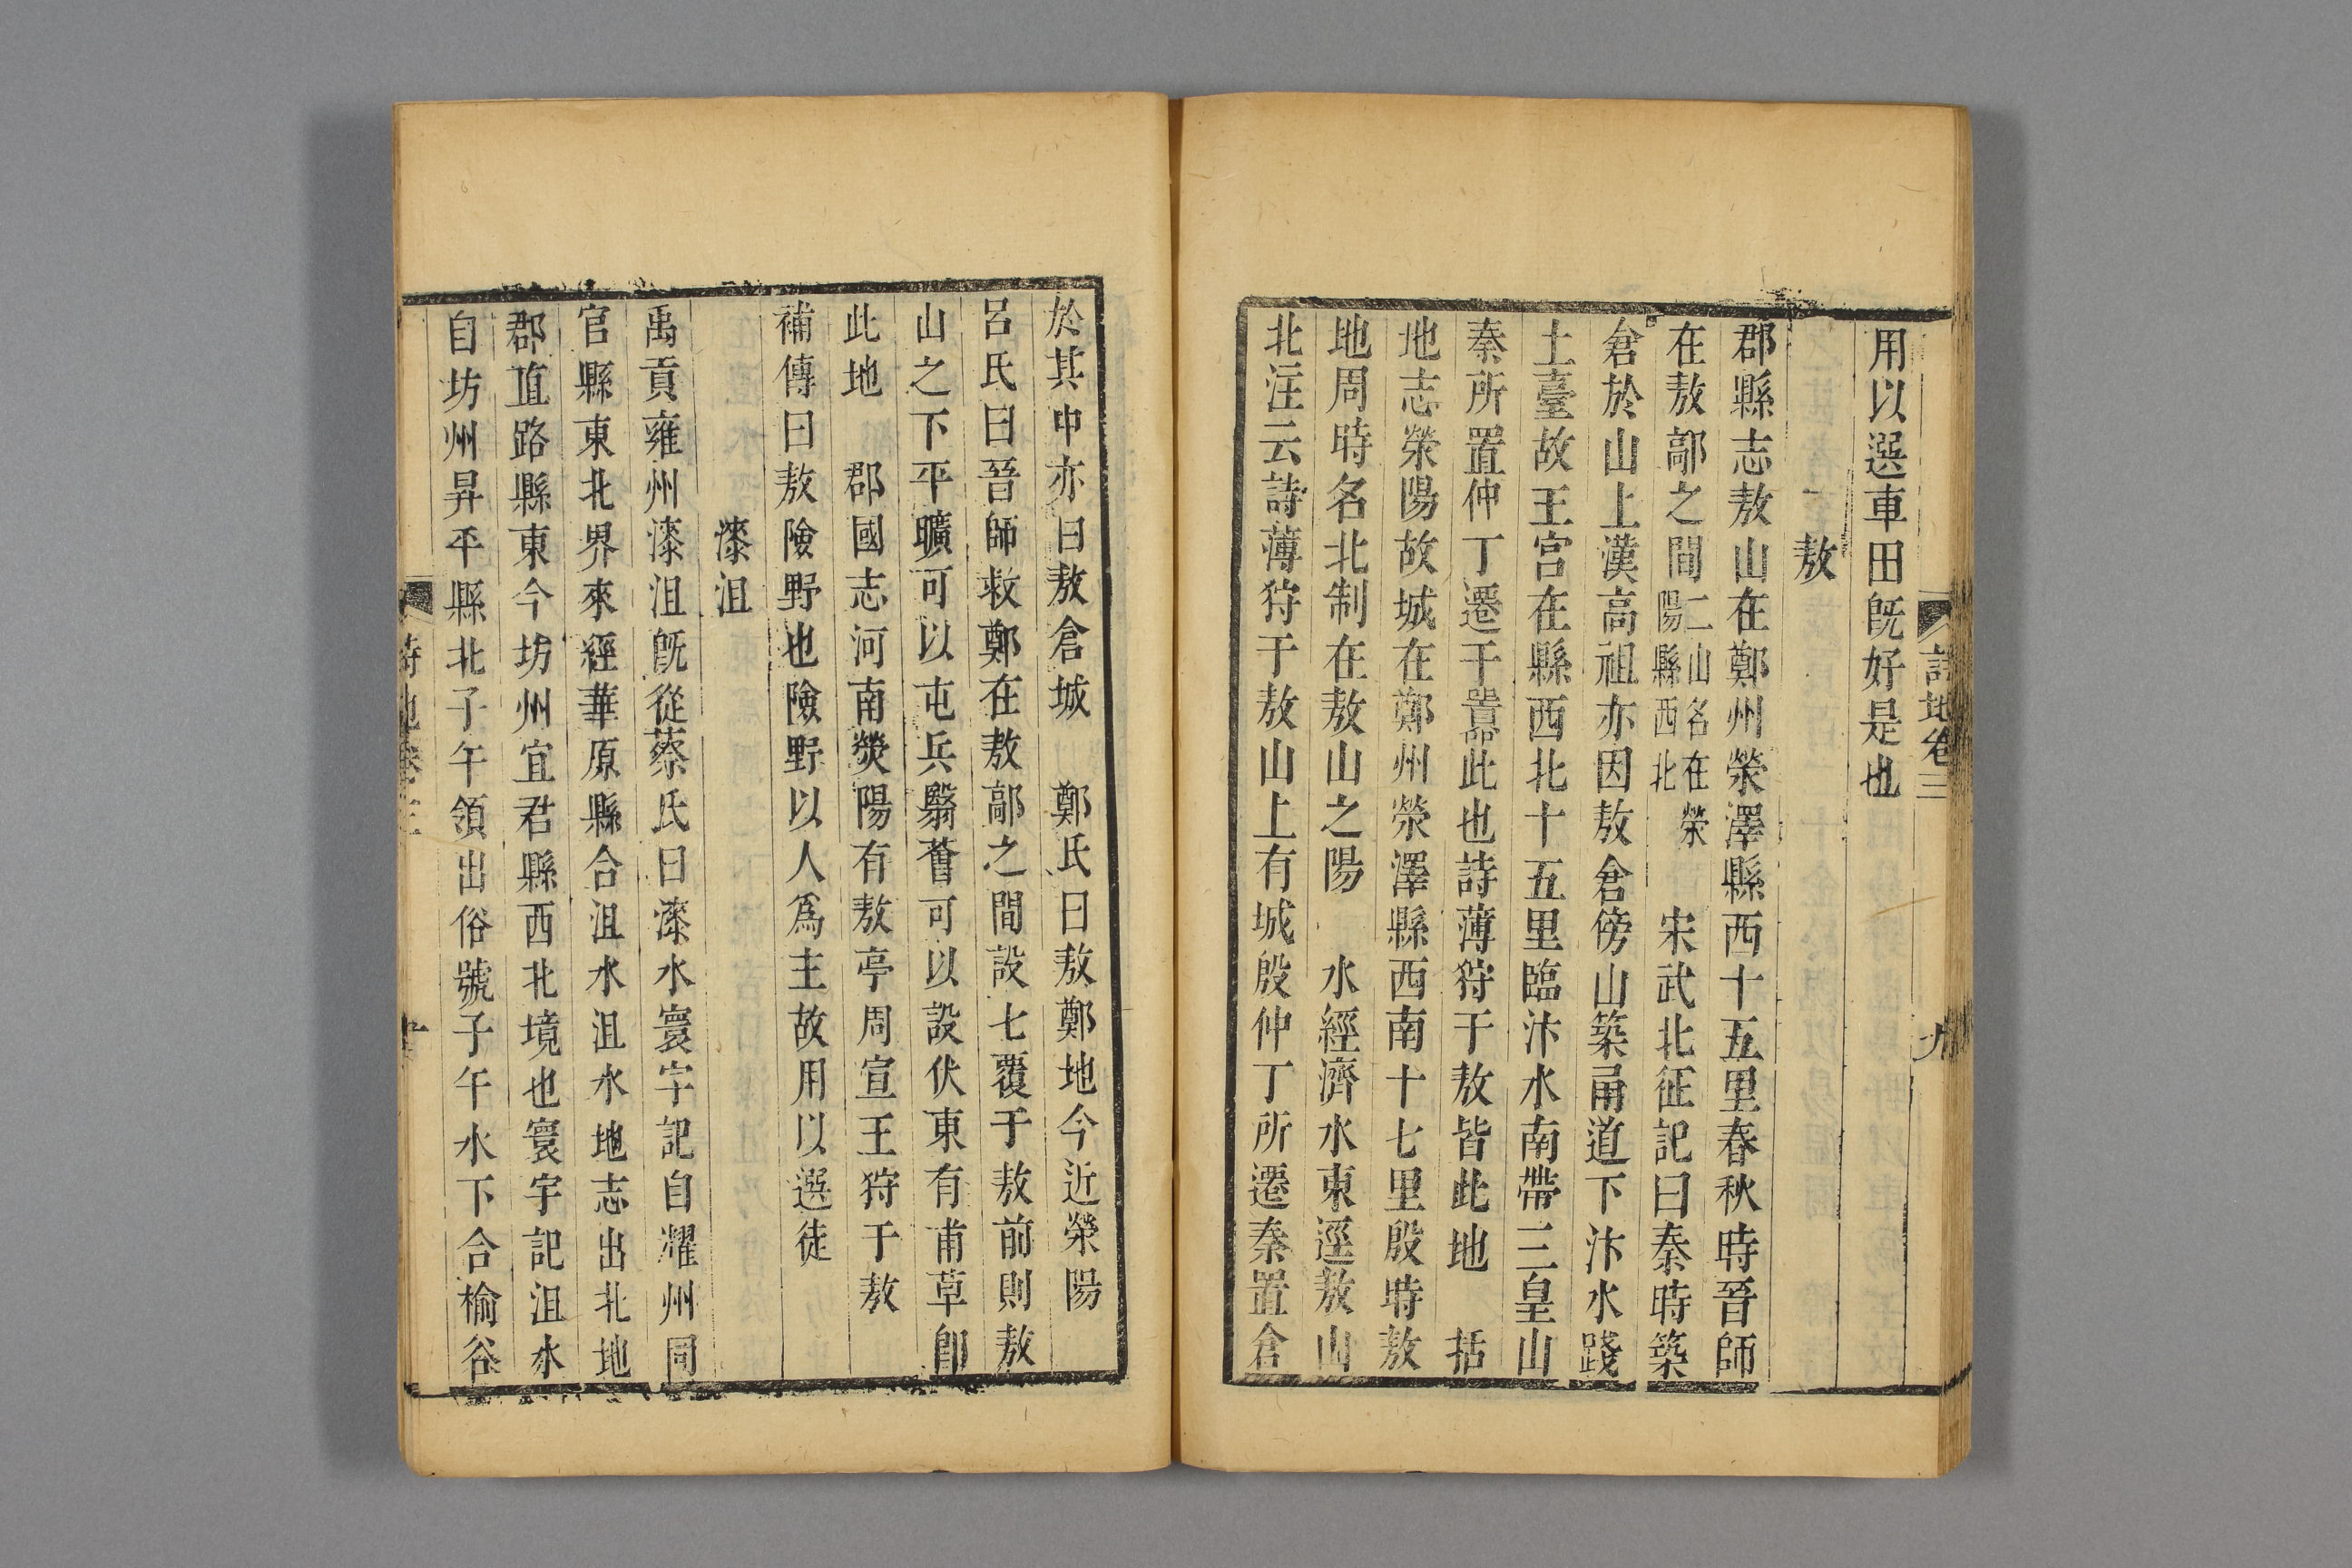 詩地卷三 九
用以選車田旣好是也
敖
郡縣志敖山在鄭州滎澤縣西十五里春秋時晉師
在敖鄗之間二山名在滎陽縣西北 宋武北征記曰秦時築
倉於山上漢高祖亦因敖倉傍山築甬道下汴水踐
土臺故王宮在縣西北十五里臨汴水南帶三皇山
秦所置仲丁遷于囂此也詩薄狩于敖皆此地 括
地志滎陽故城在鄭州滎澤縣西南十七里殷時敖
地周時名北制在敖山之陽 水經濟水東逕敖山
北注云詩薄狩于敖山上有城殷仲丁所遷秦置倉
於其中亦曰敖倉城 鄭氏曰敖鄭地今近滎陽
呂氏曰晉師救鄭在敖鄗之間設七覆于敖前則敖
山之下平曠可以屯兵翳薈可以設伏東有甫草卽
此地 郡國志河南熒陽有敖亭周宣王狩于敖
補傳曰敖險野也險野以人爲主故用以選徒
漆沮
禹貢雍州漆沮旣從蔡氏曰漆水寰宇記自耀州同
官縣東北界來經華原縣合沮水沮水地志出北地
郡直路縣東今坊州宜君縣西北境也寰宇記沮水
自坊州昇平縣北子午領出俗號子午水下合榆谷
詩地卷三 十